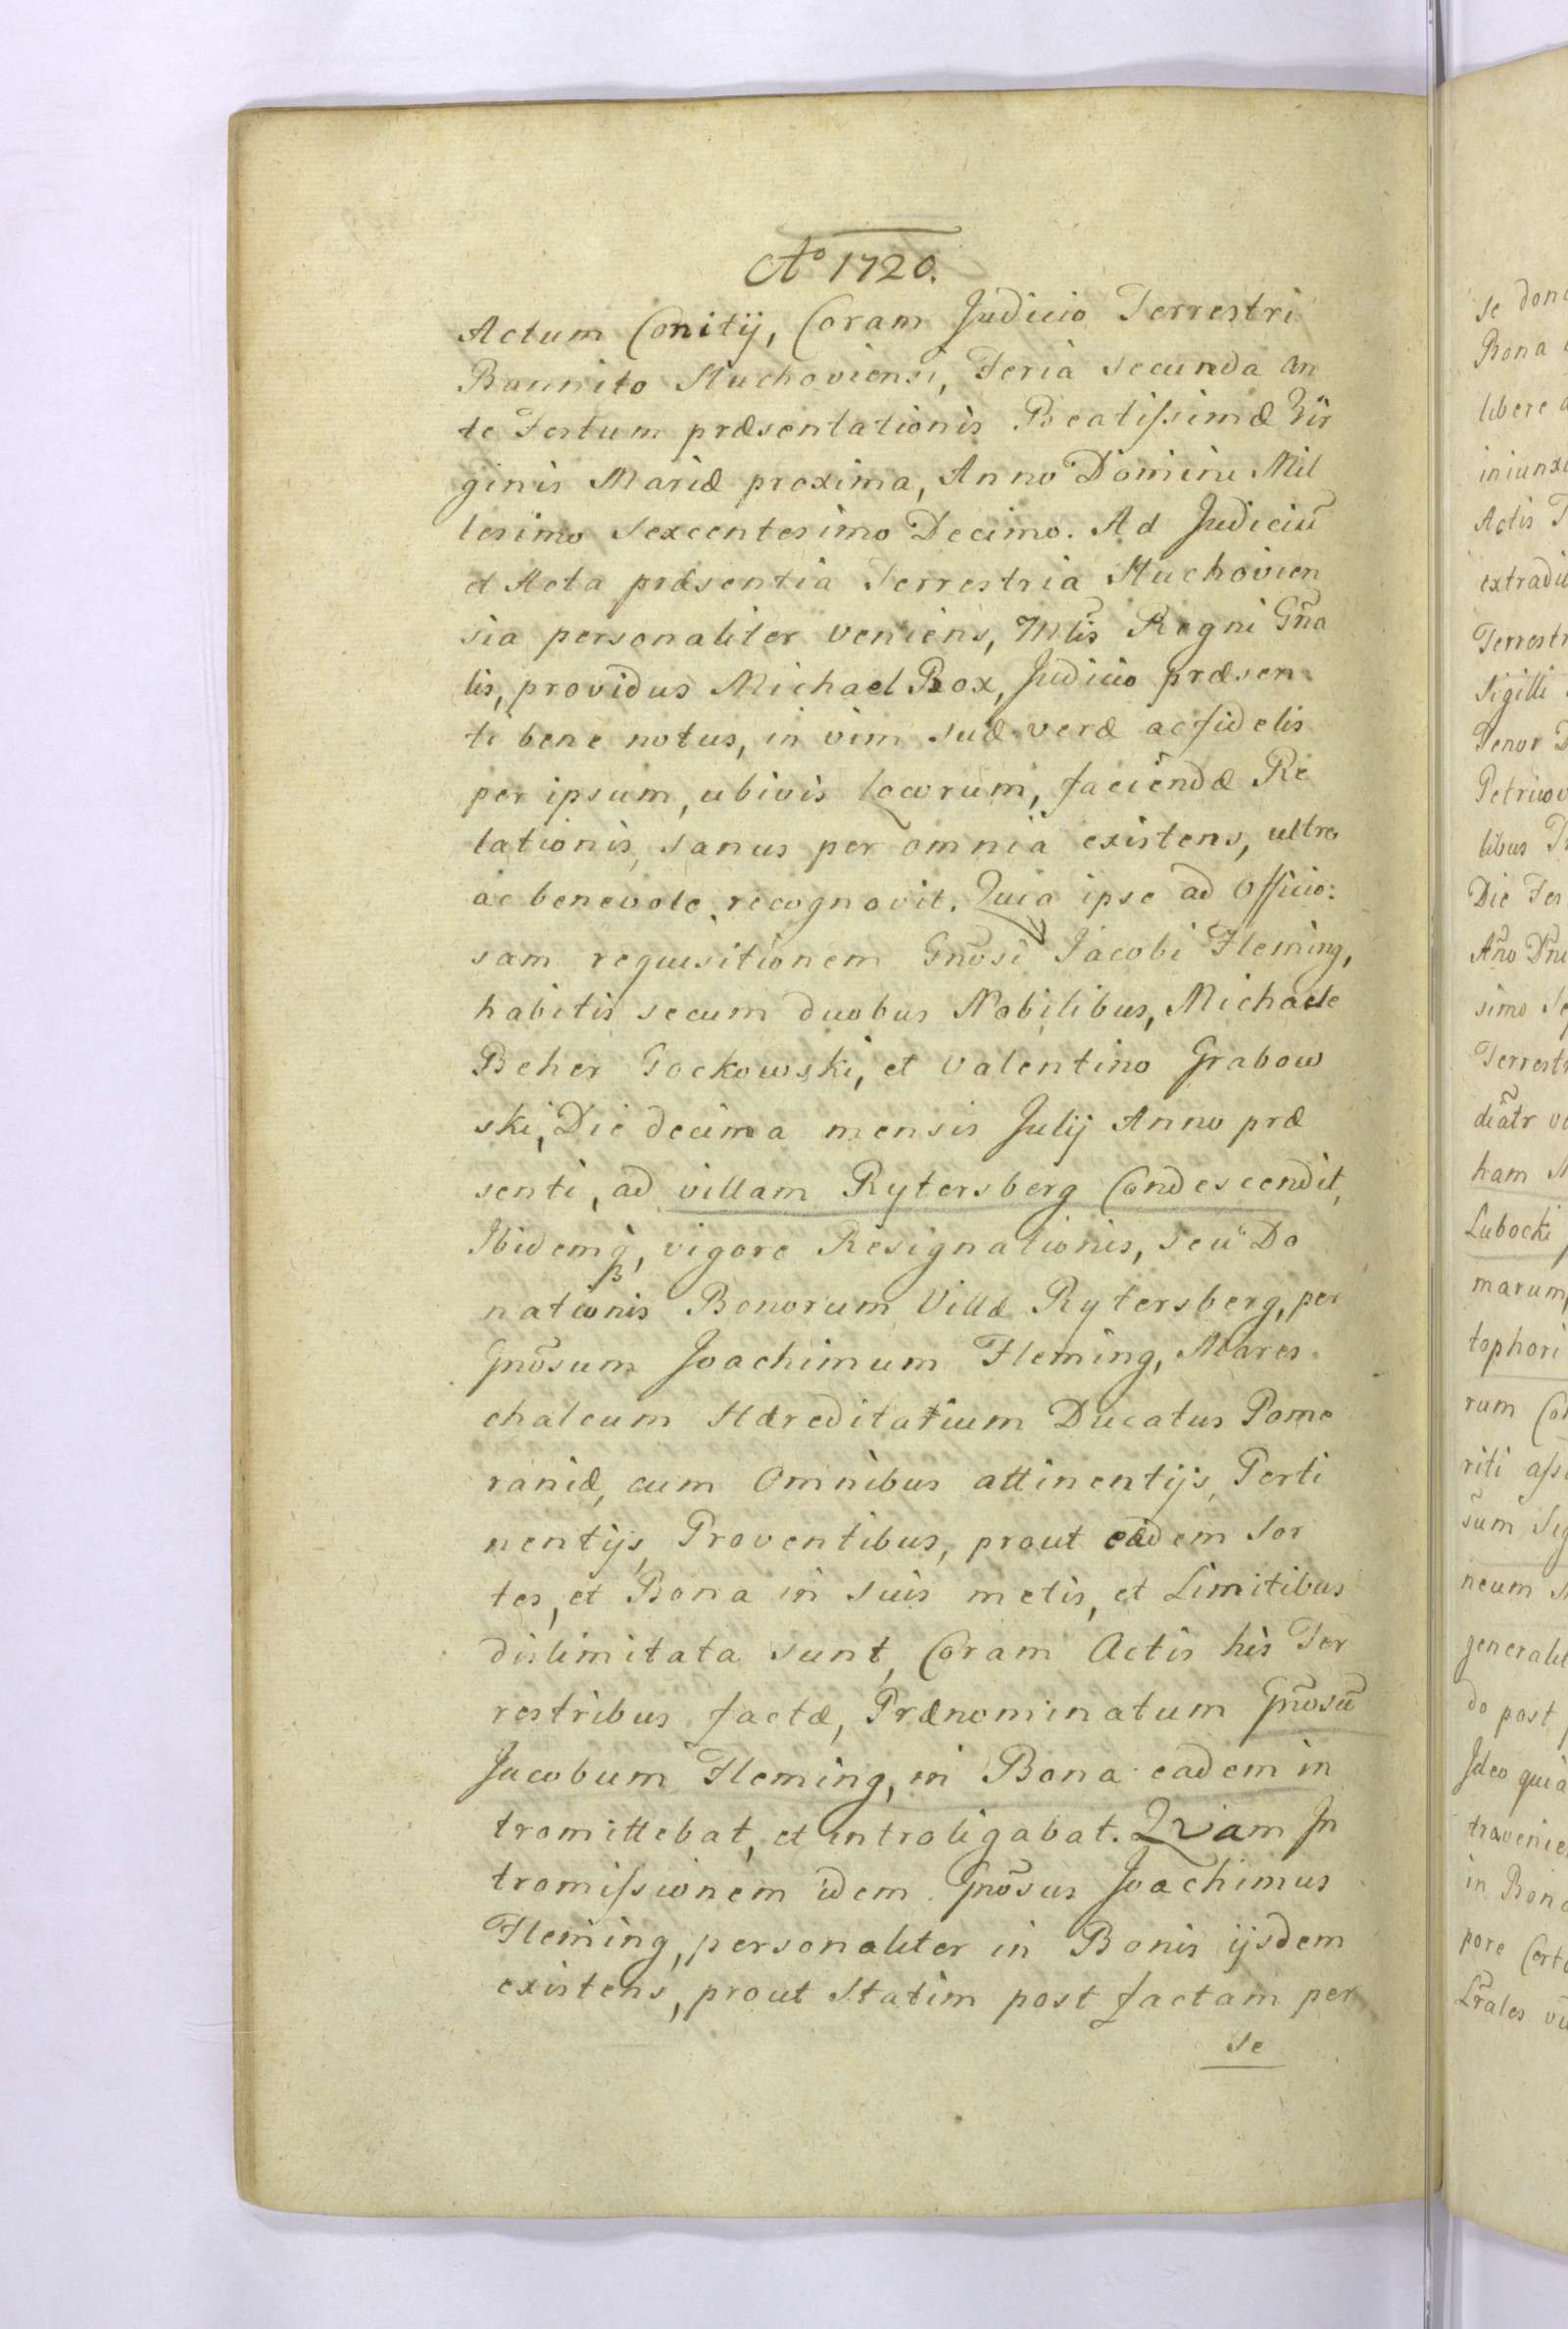 Aº 1720.
Actum Conitij, Coram Judicio Terrestri
Bannito Stuchoviensi, Feria secunda an
te Festum præsentationis Beatiſsimæ Vir
ginis Mariæ proxima, Anno Domini Mil
lesimo Sexcentesimo Decimo. Ad Judiciū
et Acta præsentia Terrestria Stuchovien
sia personaliter veniens, Mlis̃ Regni Gñа
lis, providus Michael Box, Judicio præsen
ti bene notus, in vim suæ veræ ac fidelis
per ipsum, ubivis locorum, faciendæ Re
lationis, sanus per omnia existens, ultro
ac benevole recognovit. Quia ipse ad Officio:
sam requisitionem Gnõsi Jacobi Fleming,
habitis secum duobus Nobilibus, Michaele
Beher Gockowski, et Valentino Grabow
ski, Die decima mensis Julij Anno præ
senti, ad villam Rytersberg Condescendit,
Ibidemq, vigore Resignationis, seu Do
nationis Bonorum Villæ Rytersberg, per
Gnõsum Joachimum Fleming, Mares
chalcum Hæreditarium Ducatus Pome
raniæ, cum Omnibus attinentijs, Perti
nentijs, Proventibus, prout eadem Sor
tes, et Bona in suis metis, et Limitibus
dislimitata sunt, Coram Actis his Ter
restribus factæ, Prænominatum Gnõsū
Jacobum Fleming, in Bona eadem in
tromittebat, et introligabat. Qvam In
tromiſsionem idem Gnõsus Joachimus
Fleming, personaliter in Bonis ijsdem
existens, prout Statim post factam per
se
se
Bona
libere
iniunx
Actis
extradi
Terrestr
Sigilli
Tenor
libus
Die
Año Dñi
simo
Terrest
diatr
ham
Lubocki
marum,
tophori
rum
riti
sum
neum
do post
Ideo quia
in Bon
pore